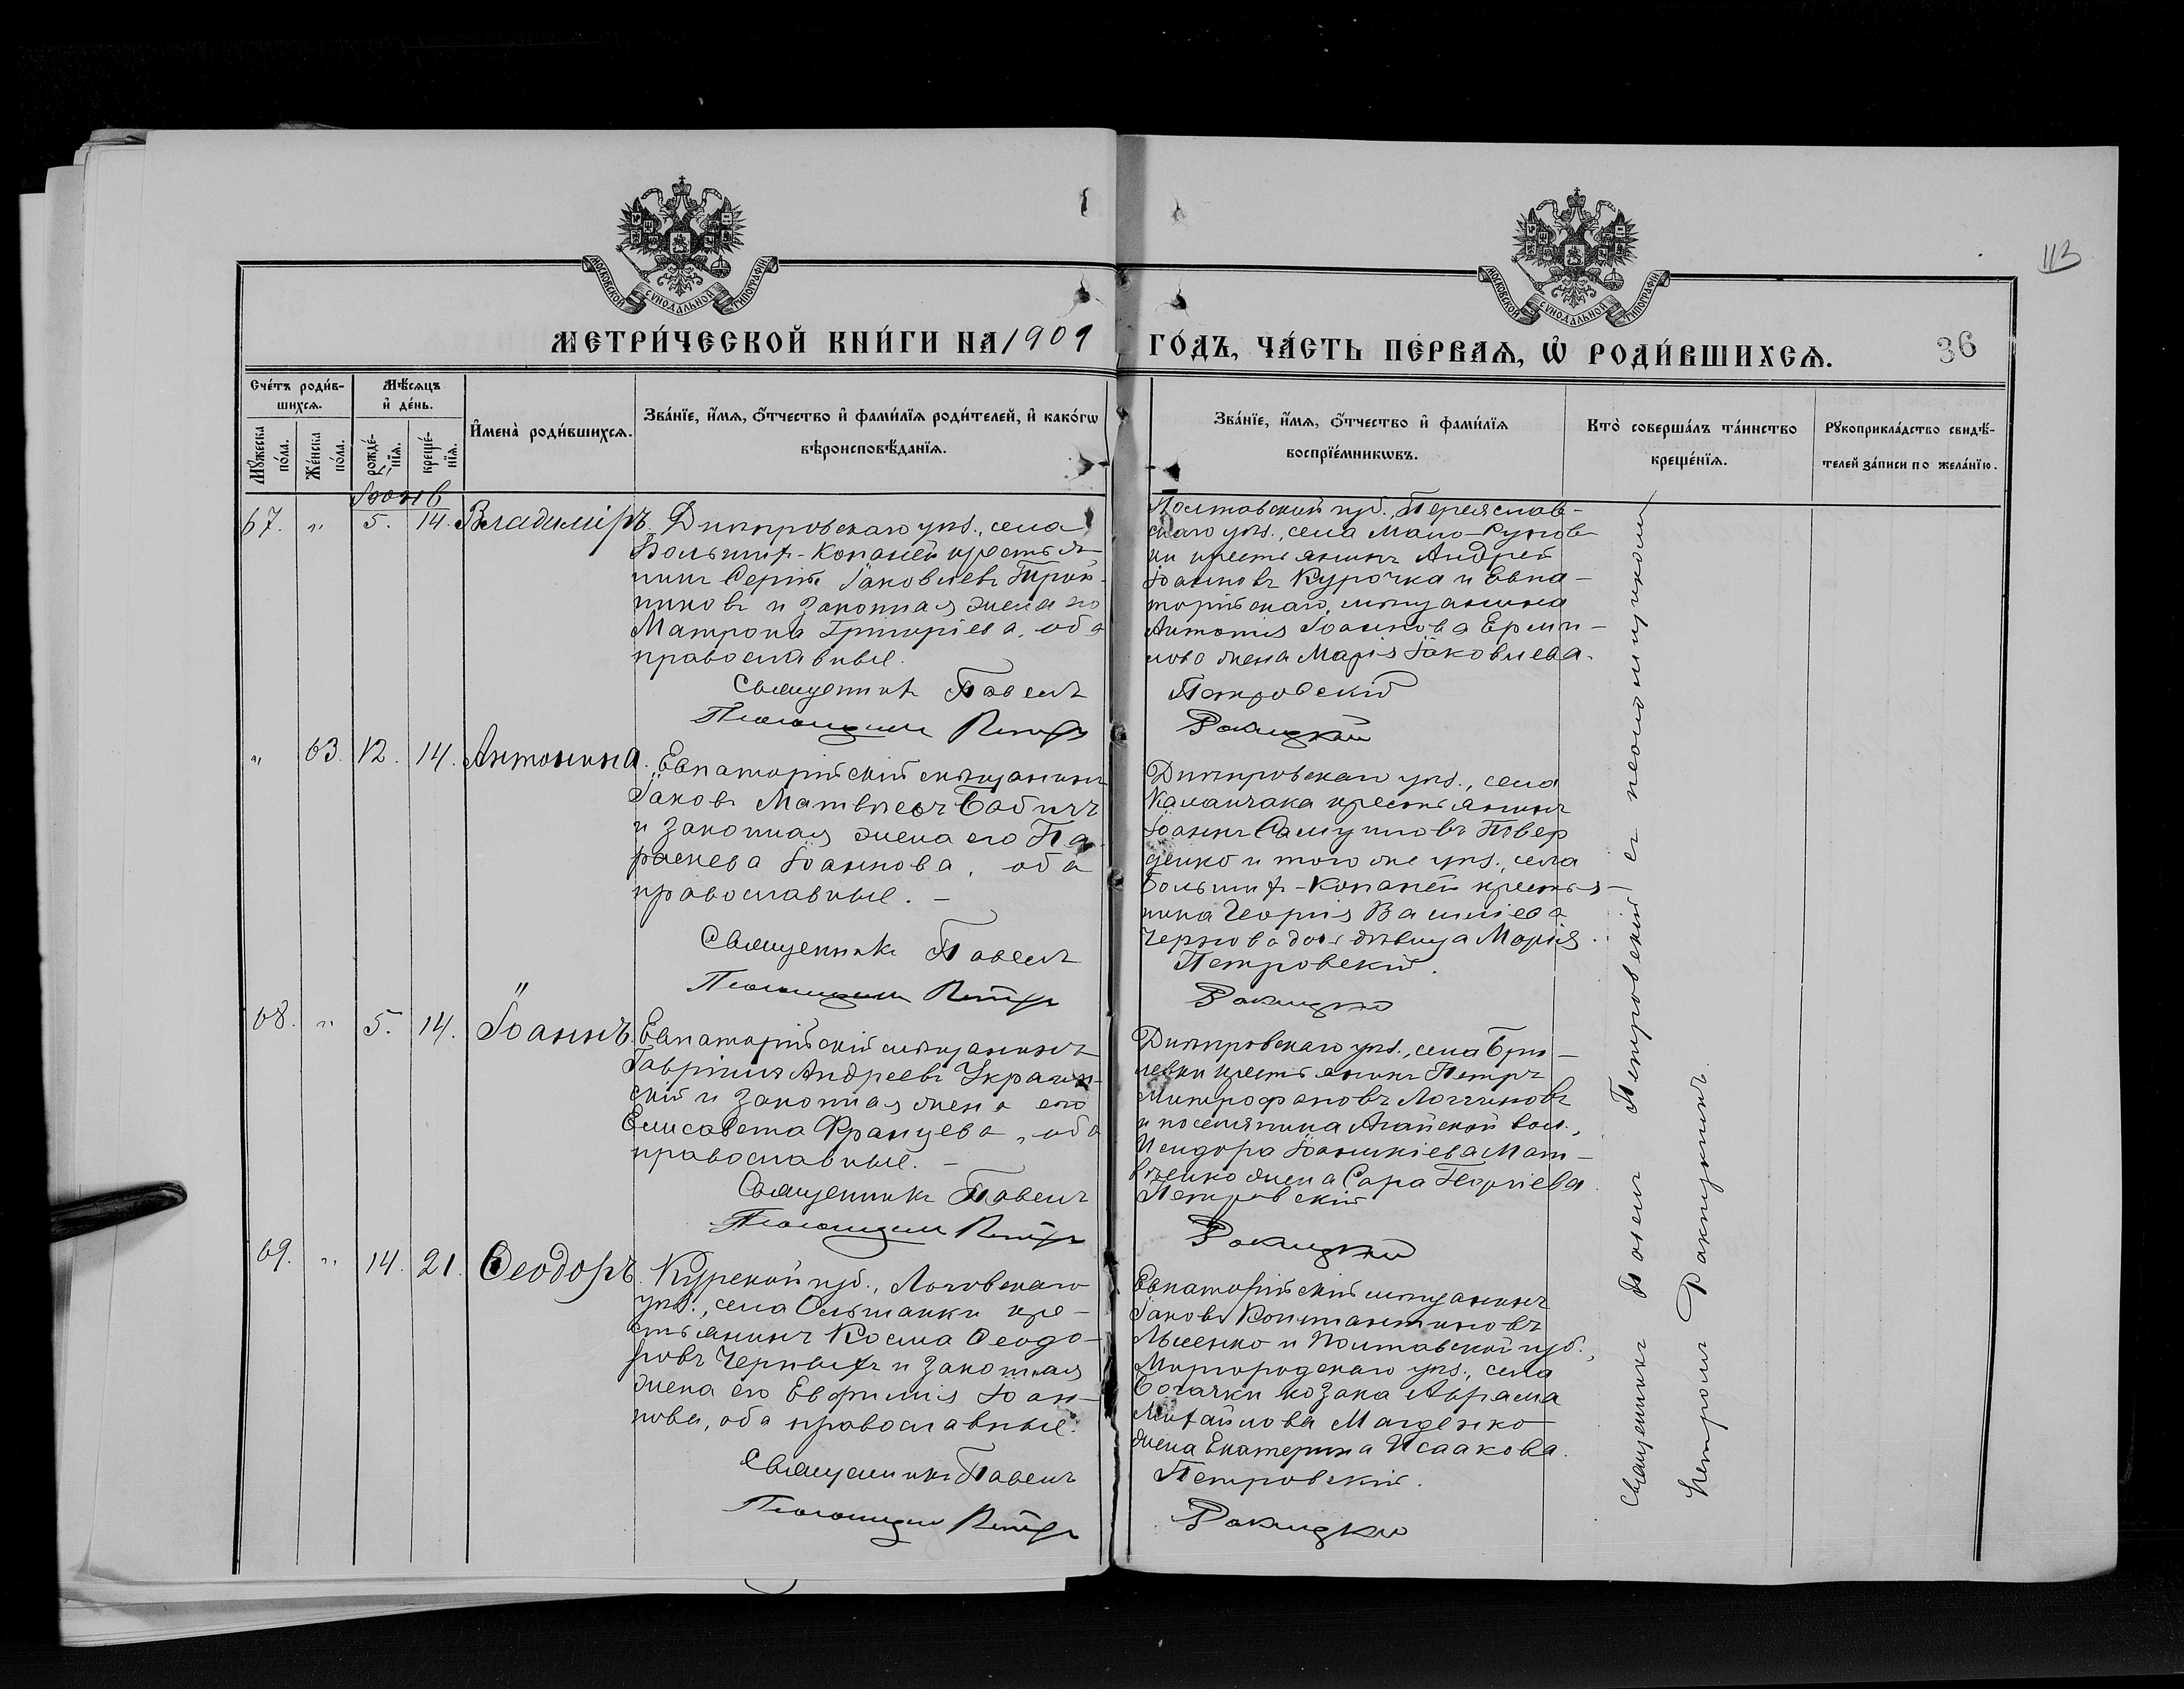 113
МОСКОВСКОЙ СУНОДАЛЬНОЙ ТИПОГРАФІИ
МОСКОВСКОЙ СУНОДАЛЬНОЙ ТИПОГРАФІИ
МЕТРИ́ЧЕСКОЙ КНИ́ГИ НА 1909
ГО́ДЪ, ЧА́СТЬ ПЕ́РВАѦ, Ѡ҆ РОДИ́ВШИХСѦ.
36
Сче́тъ роди́в-
шихсѧ.
Мꙋ́жеска по́ла.
Же́нска по́ла.
Мѣ́сѧцъ
и҆ де́нь.
рожде́-
нїѧ.
креще́-
нїѧ.
И҆мена̀ роди́вшихсѧ.
Зва́нїе, и҆́мѧ, ѻ҆́тчество и҆ фами́лїѧ роди́телей, и҆ како́гѡ
вѣроисповѣ́данїѧ.
Зва́нїе, и҆́мѧ, ѻ҆́тчество и҆ фами́лїѧ
воспрїе́мникѡвъ.
Кто̀ соверша́лъ та́инство
креще́нїѧ.
Рꙋкоприкла́дство свидѣ́-
телей за́писи по жела́нїю.
67. " 5. 14. Владиміръ.
Днѣпровскаго уѣз., села
Большихъ-Копаней крестья-
нинъ Сергій Іаковлевъ
и законная жена его
Матрона Григоріева, оба
православные.
Священникъ Павелъ
Псаломщикъ Петръ
Полтавской губ., Переяслав-
скаго уѣз., села
ки крестьянинъ Андрей
Іоанновъ Курочка и Евпа-
торійскаго мѣщанина
Антонія Іоаннова Ерми-
лова жена Марія Іаковлева.
Петровскій
Ракицкій
" 63. 12. 14. Антонина.
Евпаторійскій мѣщанинъ
Іаковъ Матвѣевъ Бабичъ
и законная жена его Па-
раскева Іоаннова, оба
православные. –
Священникъ Павелъ
Псаломщикъ Петръ
Днѣпровскаго уѣз., села
Каланчака крестьянинъ
Іоаннъ Самуиловъ
и того же уѣз., села
Большихъ-Копаней крестья-
нина Георгія Василіева
Чернова дочь дѣвица Марія.
Петровскій.
Ракицкій
68. " 5. 14. Іоаннъ.
Евпаторійскій мѣщанинъ
Гавріилъ Андреевъ Украин-
скій и законная жена его
Елисавета Францева, оба
православные. –
Священникъ Павелъ
Псаломщикъ Петръ
Днѣпровскаго уѣз., села Бри-
левки крестьянинъ Петръ
Митрофановъ Логгиновъ
и поселянина Агайской вол.,
Исидора Іоанникіева Мат-
вѣенко жена Сара Георгіева.
Петровскій
Ракицкій
69. " 14. 21. Ѳеодоръ.
Курской губ., Льговскаго
уѣз., села Ольшанки кре-
стьянинъ Косма Ѳеодо-
ровъ Черныхъ и законная
жена его Евфимія Іоан-
нова, оба православные.
Священникъ Павелъ
Псаломщикъ Петръ
Евпаторійскій мѣщанинъ
Іаковъ Константиновъ
Лысенко и Полтавской губ.,
Миргородскаго уѣз., села
Богачки козака Авраама
Михайлова
жена Екатерина Исаакова.
Петровскій.
Ракицкій
Священникъ Павелъ Петровскій съ псаломщикомъ
Петромъ Ракицкимъ.